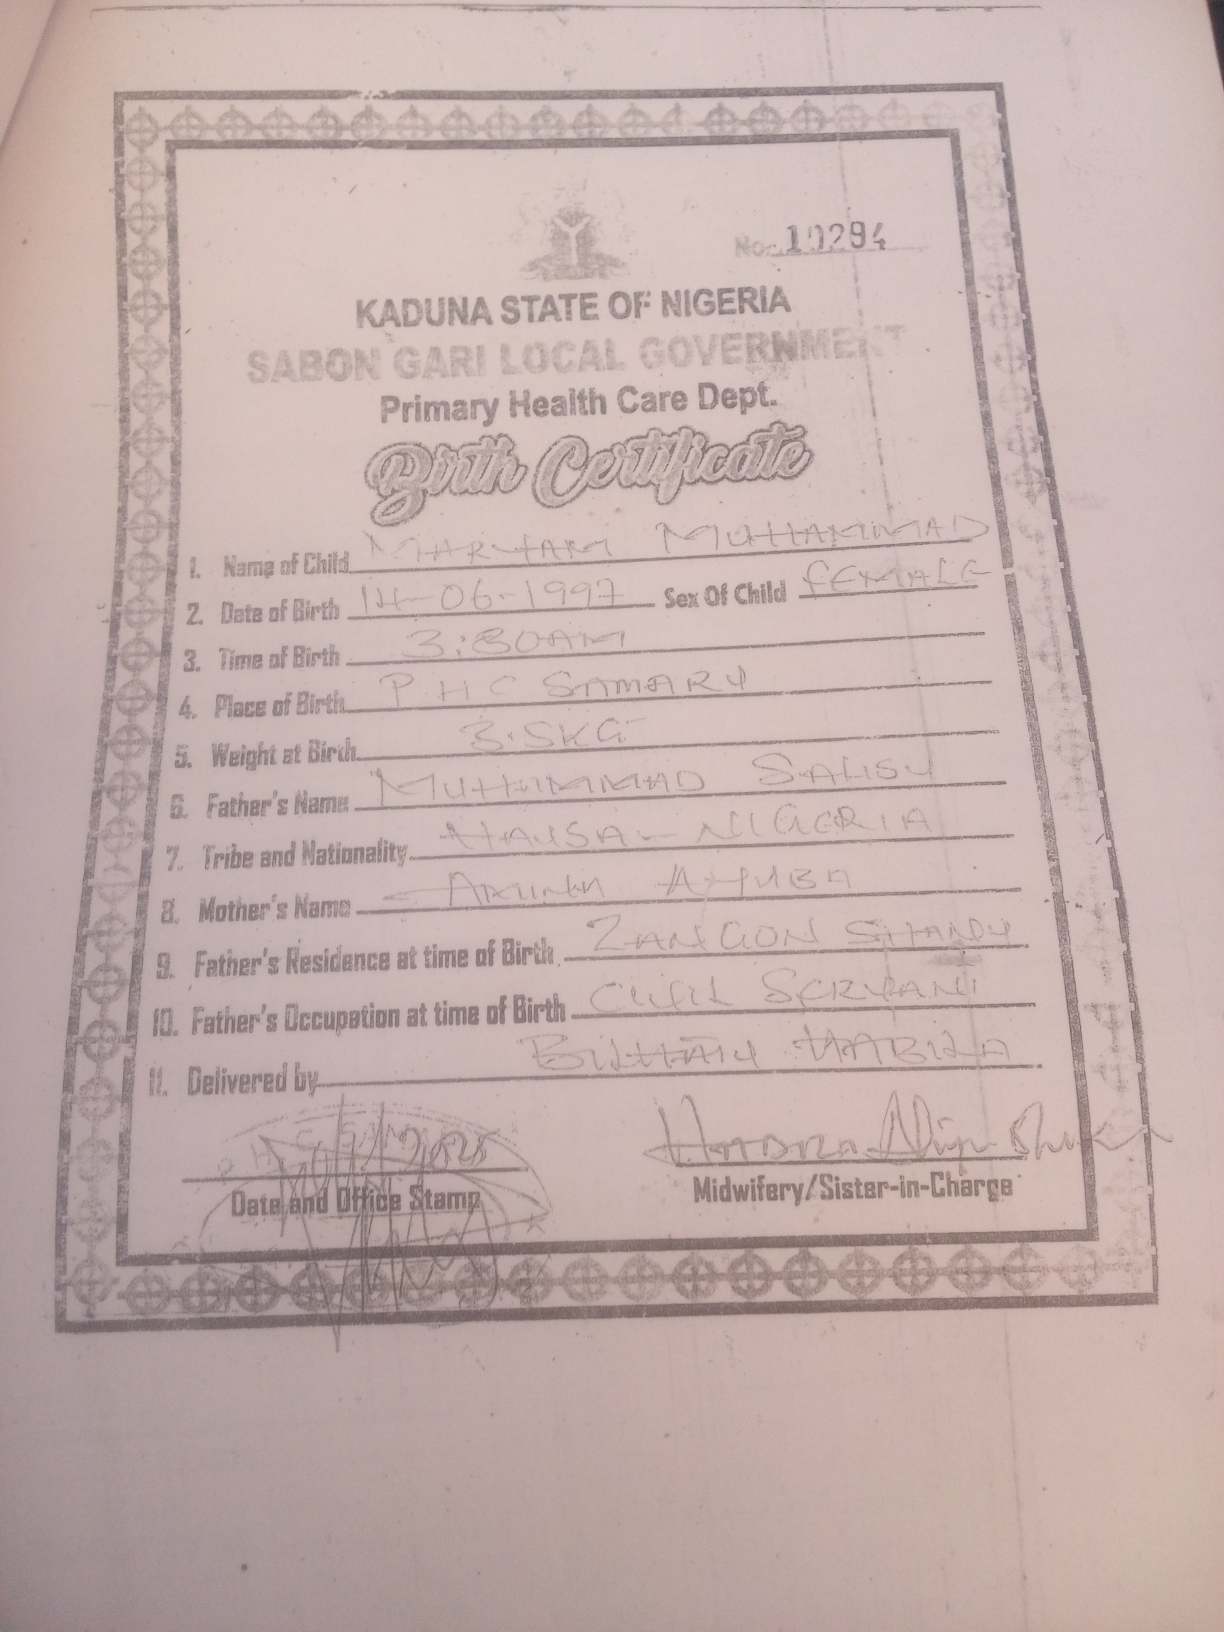 No. 10294
KADUNA STATE OF NIGERIA
SABON GARI LOCAL GOVERNMENT
Primary Health Care Dept.
Birth Certificate
1. Name of Child MARYAM MUHAMMAD
2. Date of Birth 14-06-1997 Sex Of Child FEMALE
3. Time of Birth 3:30AM
4. Place of Birth PHC SAMARU
5. Weight at Birth 3.5KG
6. Father's Name MUHAMMAD SALISU
7. Tribe and Nationality HAUSA - NIGERIA
8. Mother's Name AYUBA
9. Father's Residence at time of Birth ZANGON SHANU
10. Father's Occupation at time of Birth CIVIL SERVANT
11. Delivered by HABILA
Date and Office Stamp
Midwifery/Sister-in-Charge